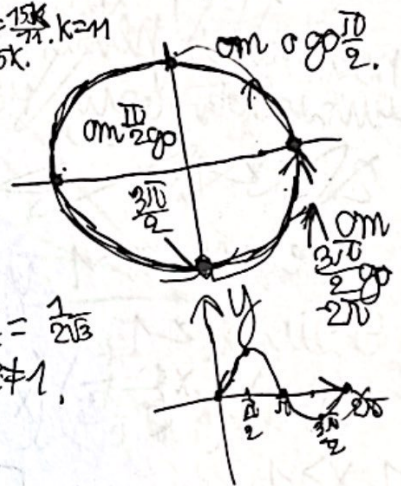 =15K/11. K=11
5K.
от 0 до π/2.
от π/2 до
3π/2
от 3π/2 до 2π
= 1/2√3
≠1.
y
π/2 π 3π/2 2π